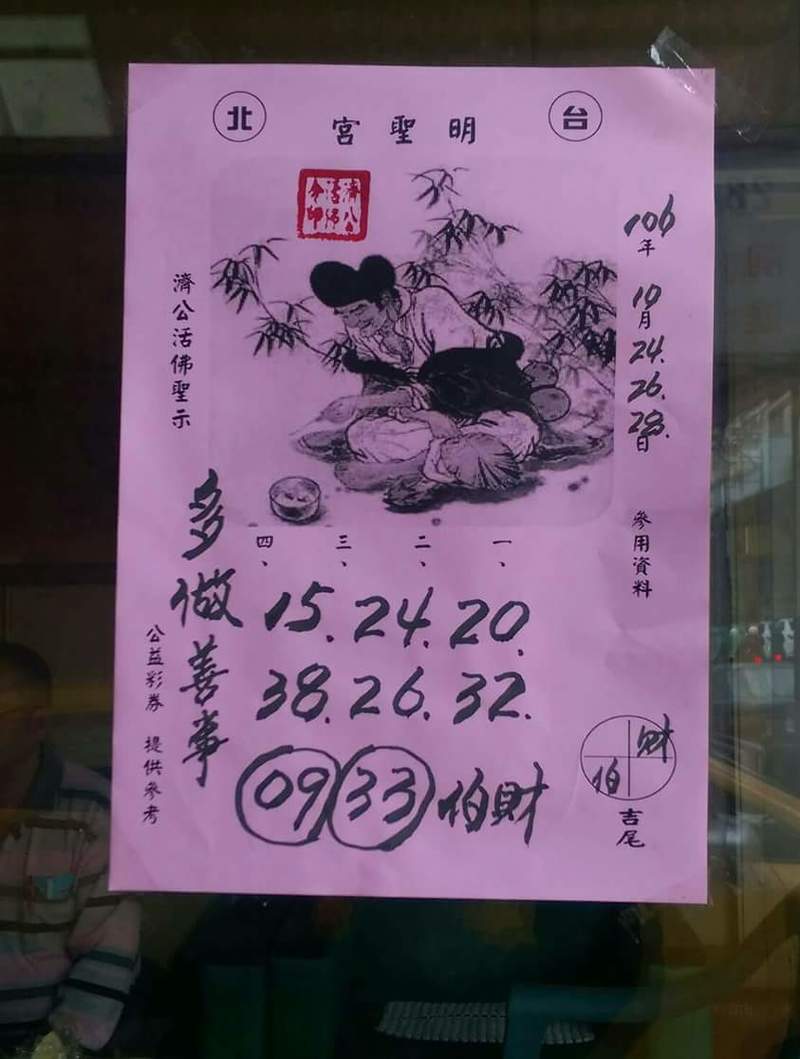 台北
明聖宮
106年10月24.26.28.日
參用資料
濟公活佛聖示
一、二、三、四、
15.24.20.
38.26.32.
09 33 伯財
多做善事
公益彩券 提供參考
財伯
吉尾